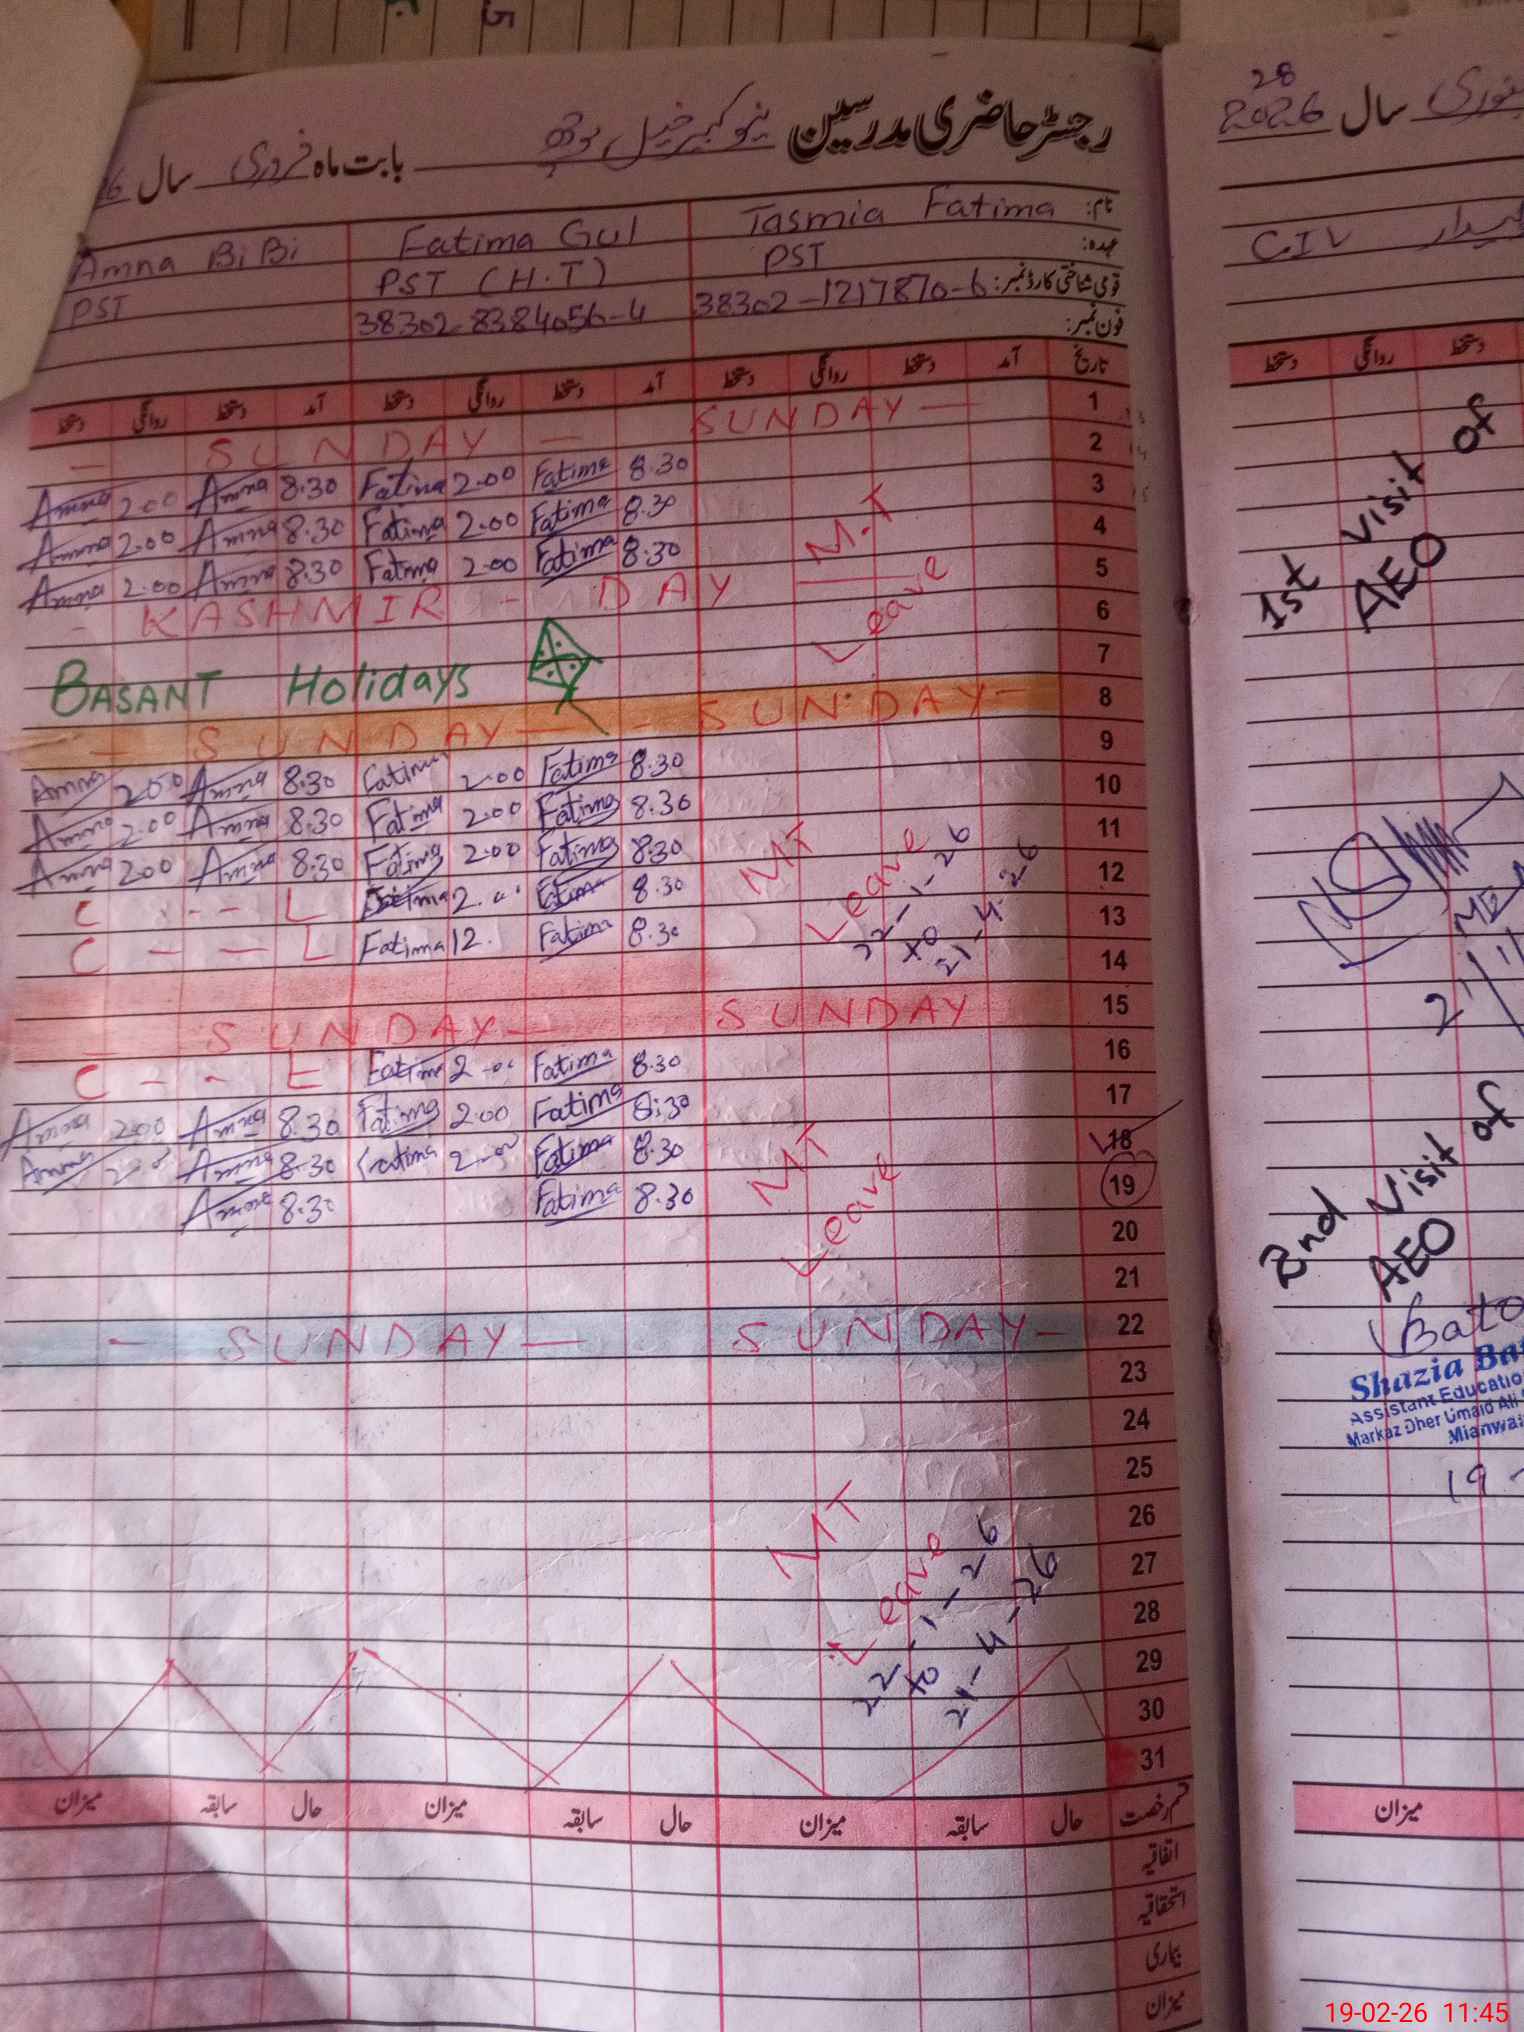 رجسٹر حاضری مدرسین نیو کبیر خیل بابت ماہ فروری سال
نام: Tasmia Fatima Fatima Gul Amna BiBi
عہدہ: PST PST (H.T) PST
قومی شناختی کارڈ نمبر: 38302-1217870-6 38302-8384056-4
فون نمبر:
تاریخ آمد دستخط روانگی دستخط آمد دستخط روانگی دستخط آمد دستخط روانگی دستخط
1 SUNDAY — - SUNDAY -
2 8.30 Fatima 2.00 Fatima 8.30 Amna 2.00 Amna
3 8.30 Fatima 2.00 Fatima 8.30 Amna 2.00 Amna
4 8.30 Fatima 2.00 Fatima 8.30 Amna 2.00 Amna
M.T Leave
5 KASHMIR - DAY
6
7 BASANT Holidays
8 - SUNDAY - - SUNDAY -
9 8.30 Fatima 2.00 Fatima 8.30 Amna 2.00 Amna
10 8.30 Fatima 2.00 Fatima 8.30 Amna 2.00 Amna
11 8.30 Fatima 2.00 Fatima 8.30 Amna 2.00 Amna
12 8.30 Fatima 2.00 Fatima C - - - L
13 8.30 Fatima 12. Fatima C - - L
MT Leave
22-1-26
to
21-4-26
14
15 SUNDAY - SUNDAY -
16 8.30 Fatima 2.00 Fatima C - - L
17 8:30 Fatima 2.00 Fatima 8.30 Amna 2.00 Amna
18 8.30 Fatima 2.00 Fatima 8.30 Amna 2.00 Amna
19 8.30 Fatima 8.30 Amna
MT Leave
20
21
22 SUNDAY - - SUNDAY -
23
24
25
26
27
28
MT Leave
22-1-26
to
21-4-26
29
30
31
قسم رخصت حال سابقہ میزان حال سابقہ میزان حال سابقہ میزان
اتفاقیہ
استحقاقیہ
بیماری
میزان
28
سال 2026
CIV
دستخط روانگی دستخط
1st visit of
AEO
2nd Visit of
AEO
Shazia
Assistant
Markaz Dher Umaid Ali
19
میزان
19-02-26 11:45